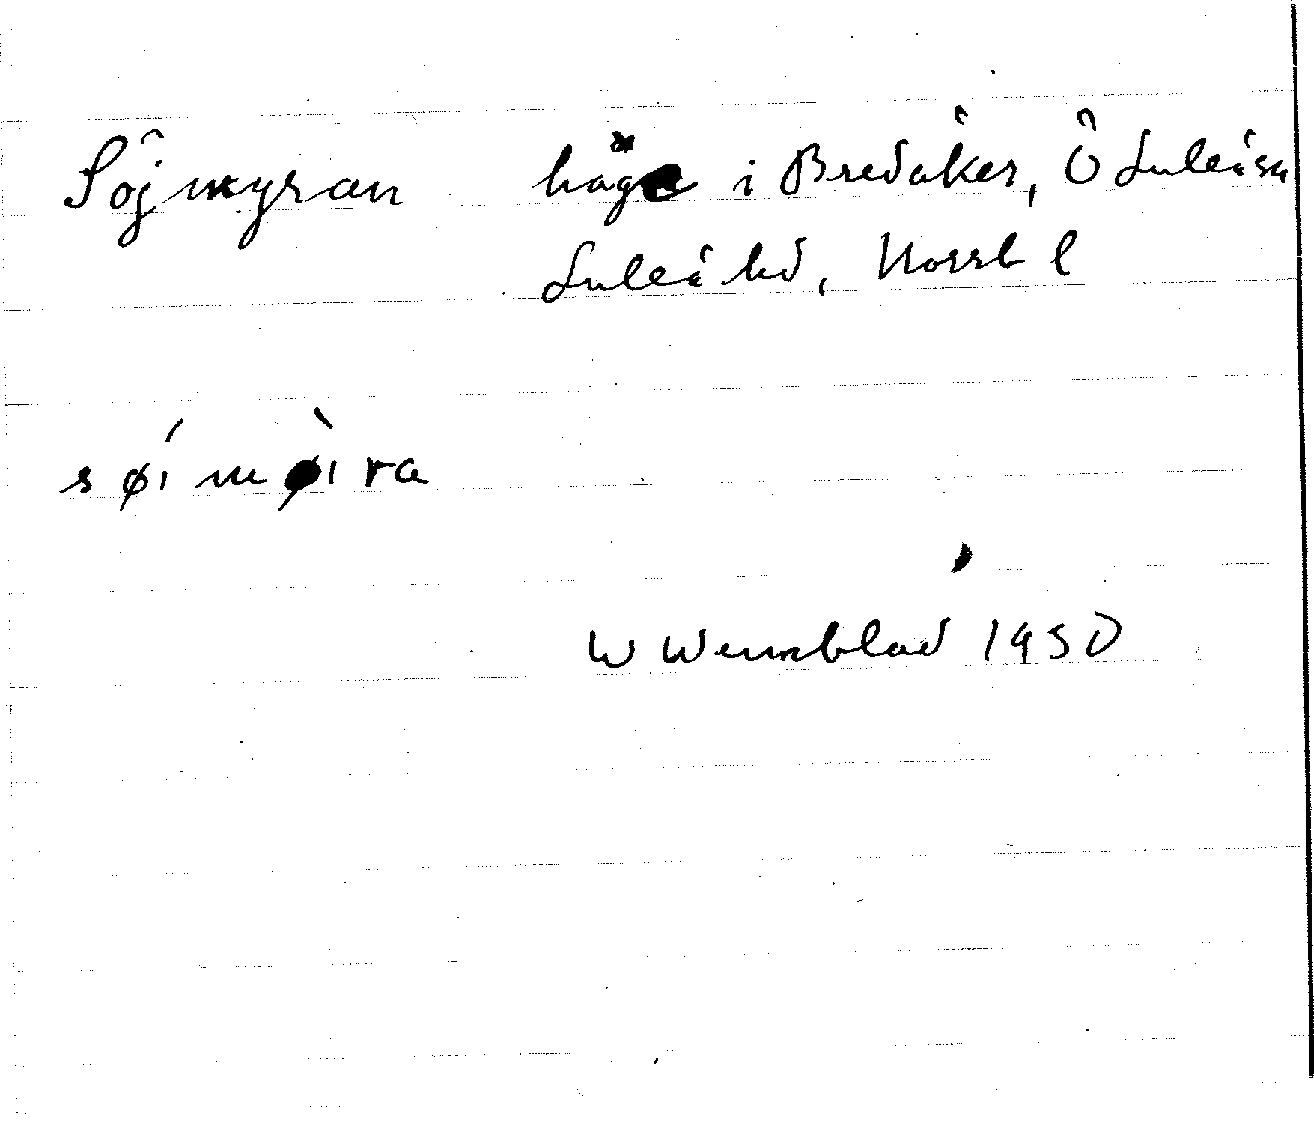 Söjmyran häge i Bredåker, Ö Luleå sn
Luleå hd, Norrb l
søi møi ra
W Wennblad 1930